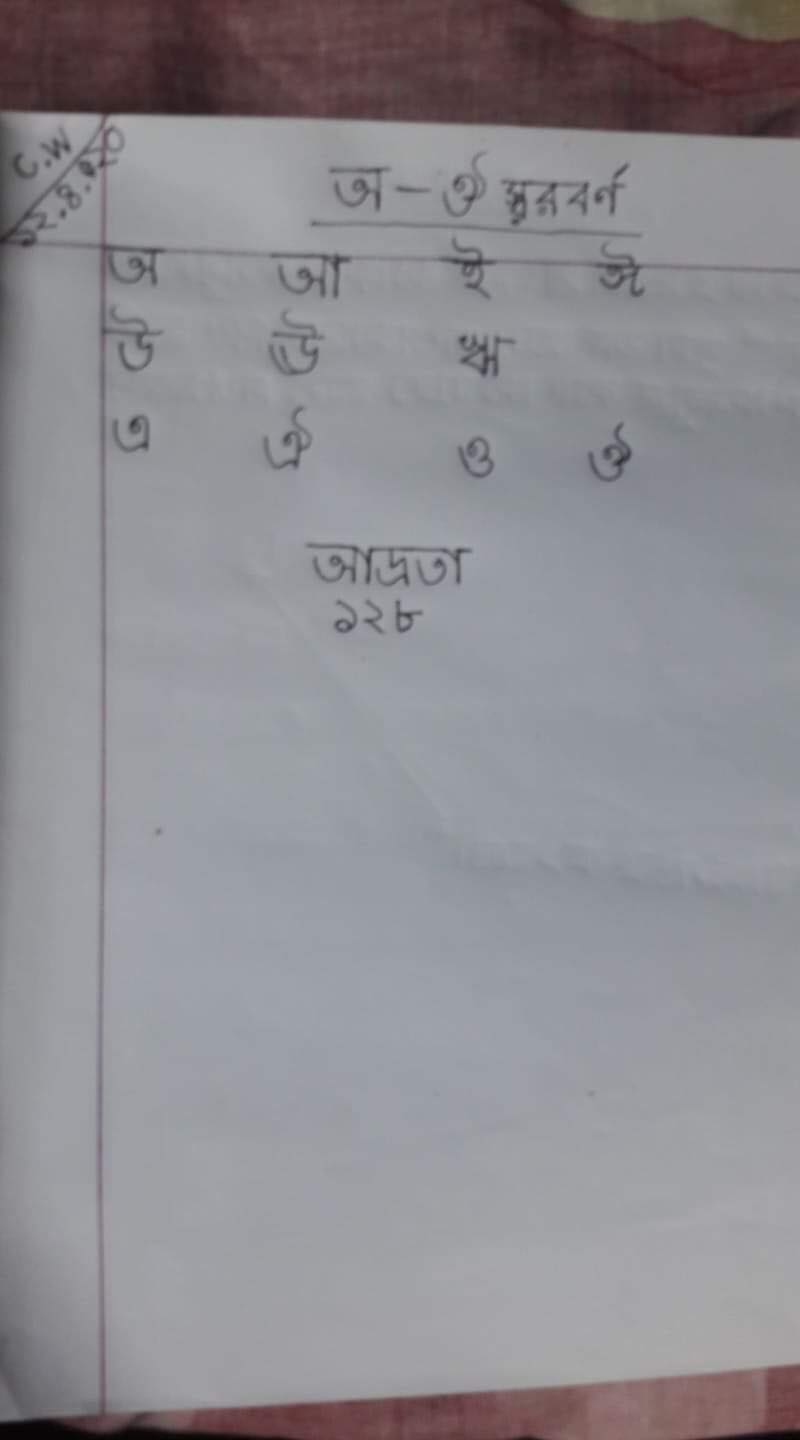 C.W
১২.৪.২০
অ - ঔ স্বরবর্ণ
অ আ ই ঈ
উ ঊ ঋ
এ ঐ ও ঔ
আদ্রতা
১২৮